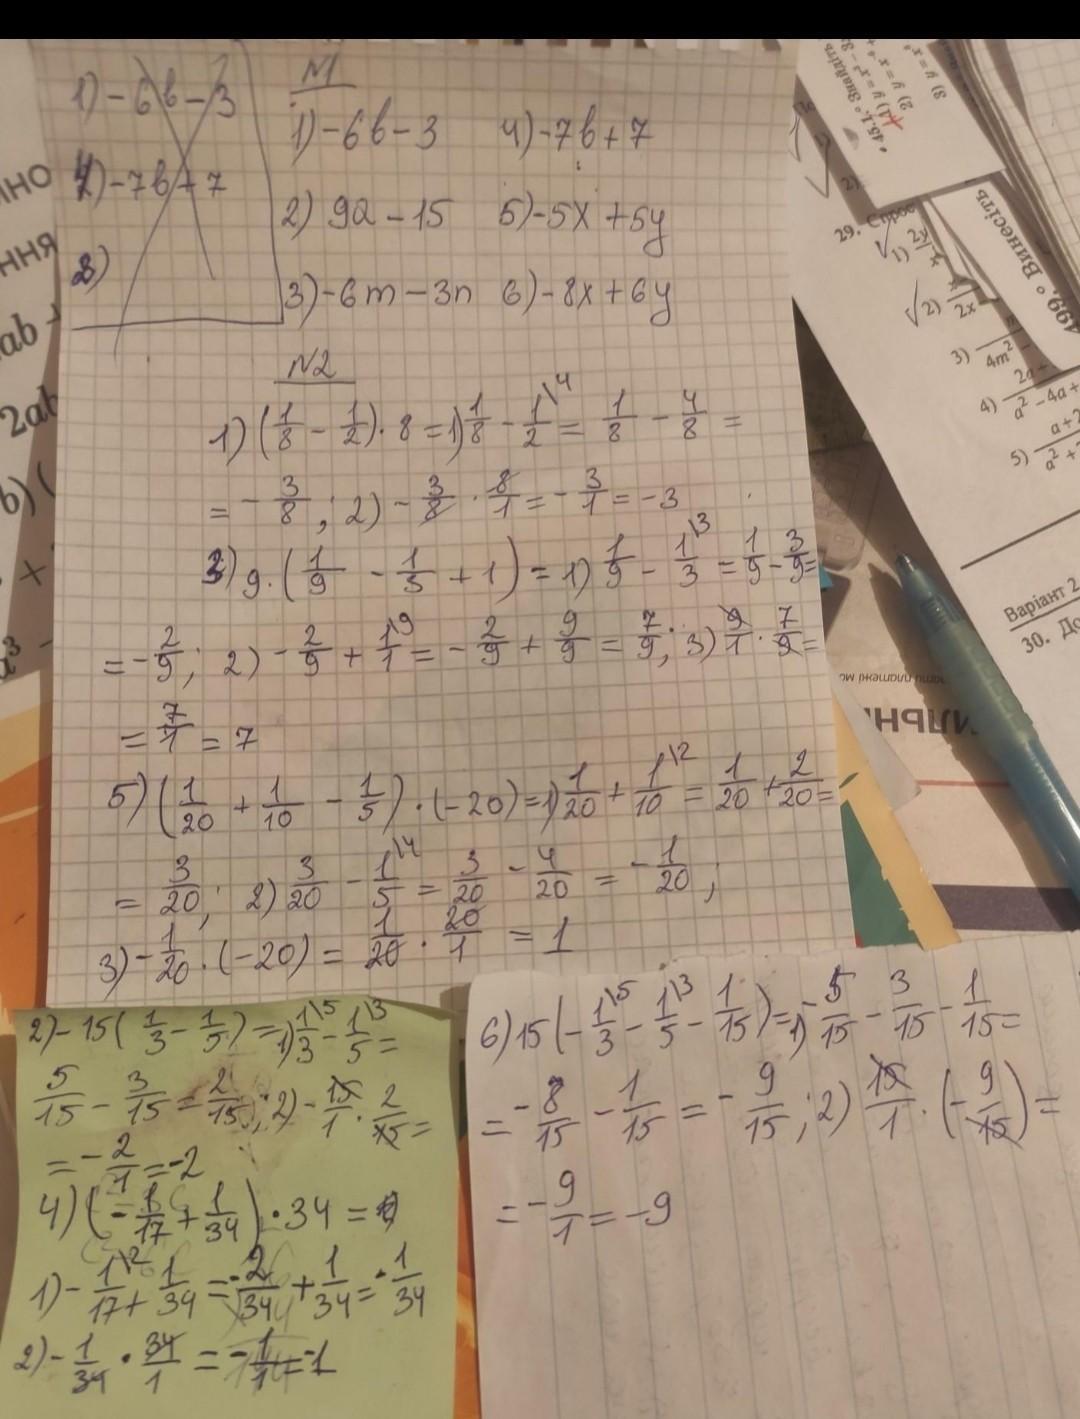 1) -6b-3
4) -7b+7
3)
N1
1) -6b-3 4) -7b+7
2) 9a-15 5) -5x+5y
3) -6m-3n 6) -8x+6y
N2
1) (1/8 - 1/2) · 8 = 1) 1/8 - 1/2\4 = 1/8 - 4/8 =
= -3/8; 2) -3/8 · 8/1 = -3/1 = -3
3) 9 · (1/9 - 1/3 + 1) = 1) 1/9 - 1/3\3 = 1/9 - 3/9 =
= -2/9; 2) -2/9 + 1/1\9 = -2/9 + 9/9 = 7/9; 3) 9/1 · 7/9 =
= 7/1 = 7
5) (1/20 + 1/10 - 1/5) · (-20) = 1) 1/20 + 1/10\2 = 1/20 + 2/20 =
= 3/20; 2) 3/20 - 1/5\4 = 3/20 - 4/20 = -1/20;
3) -1/20 · (-20) = 1/20 · 20/1 = 1
2) -15 (1/3 - 1/5) = 1) 1/3\5 - 1/5\3 =
5/15 - 3/15 = 2/15; 2) -15/1 · 2/15 =
= -2/1 = -2
4) (-1/17 + 1/34) · 34 =
1) -1/17\2 + 1/34 = -2/34 + 1/34 = -1/34
2) -1/34 · 34/1 = -1/1 = -1
6) 15 (-1/3\5 - 1/5\3 - 1/15) = 1) -5/15 - 3/15 - 1/15 =
= -8/15 - 1/15 = -9/15; 2) 15/1 · (-9/15) =
= -9/1 = -9
ab
2ab
b) (
29.
1) 2y
2)
2x
3)
4m²
4) 2a
a² - 4a +
5) a + 2
499.° Винесіть
Варіант 2
30. До